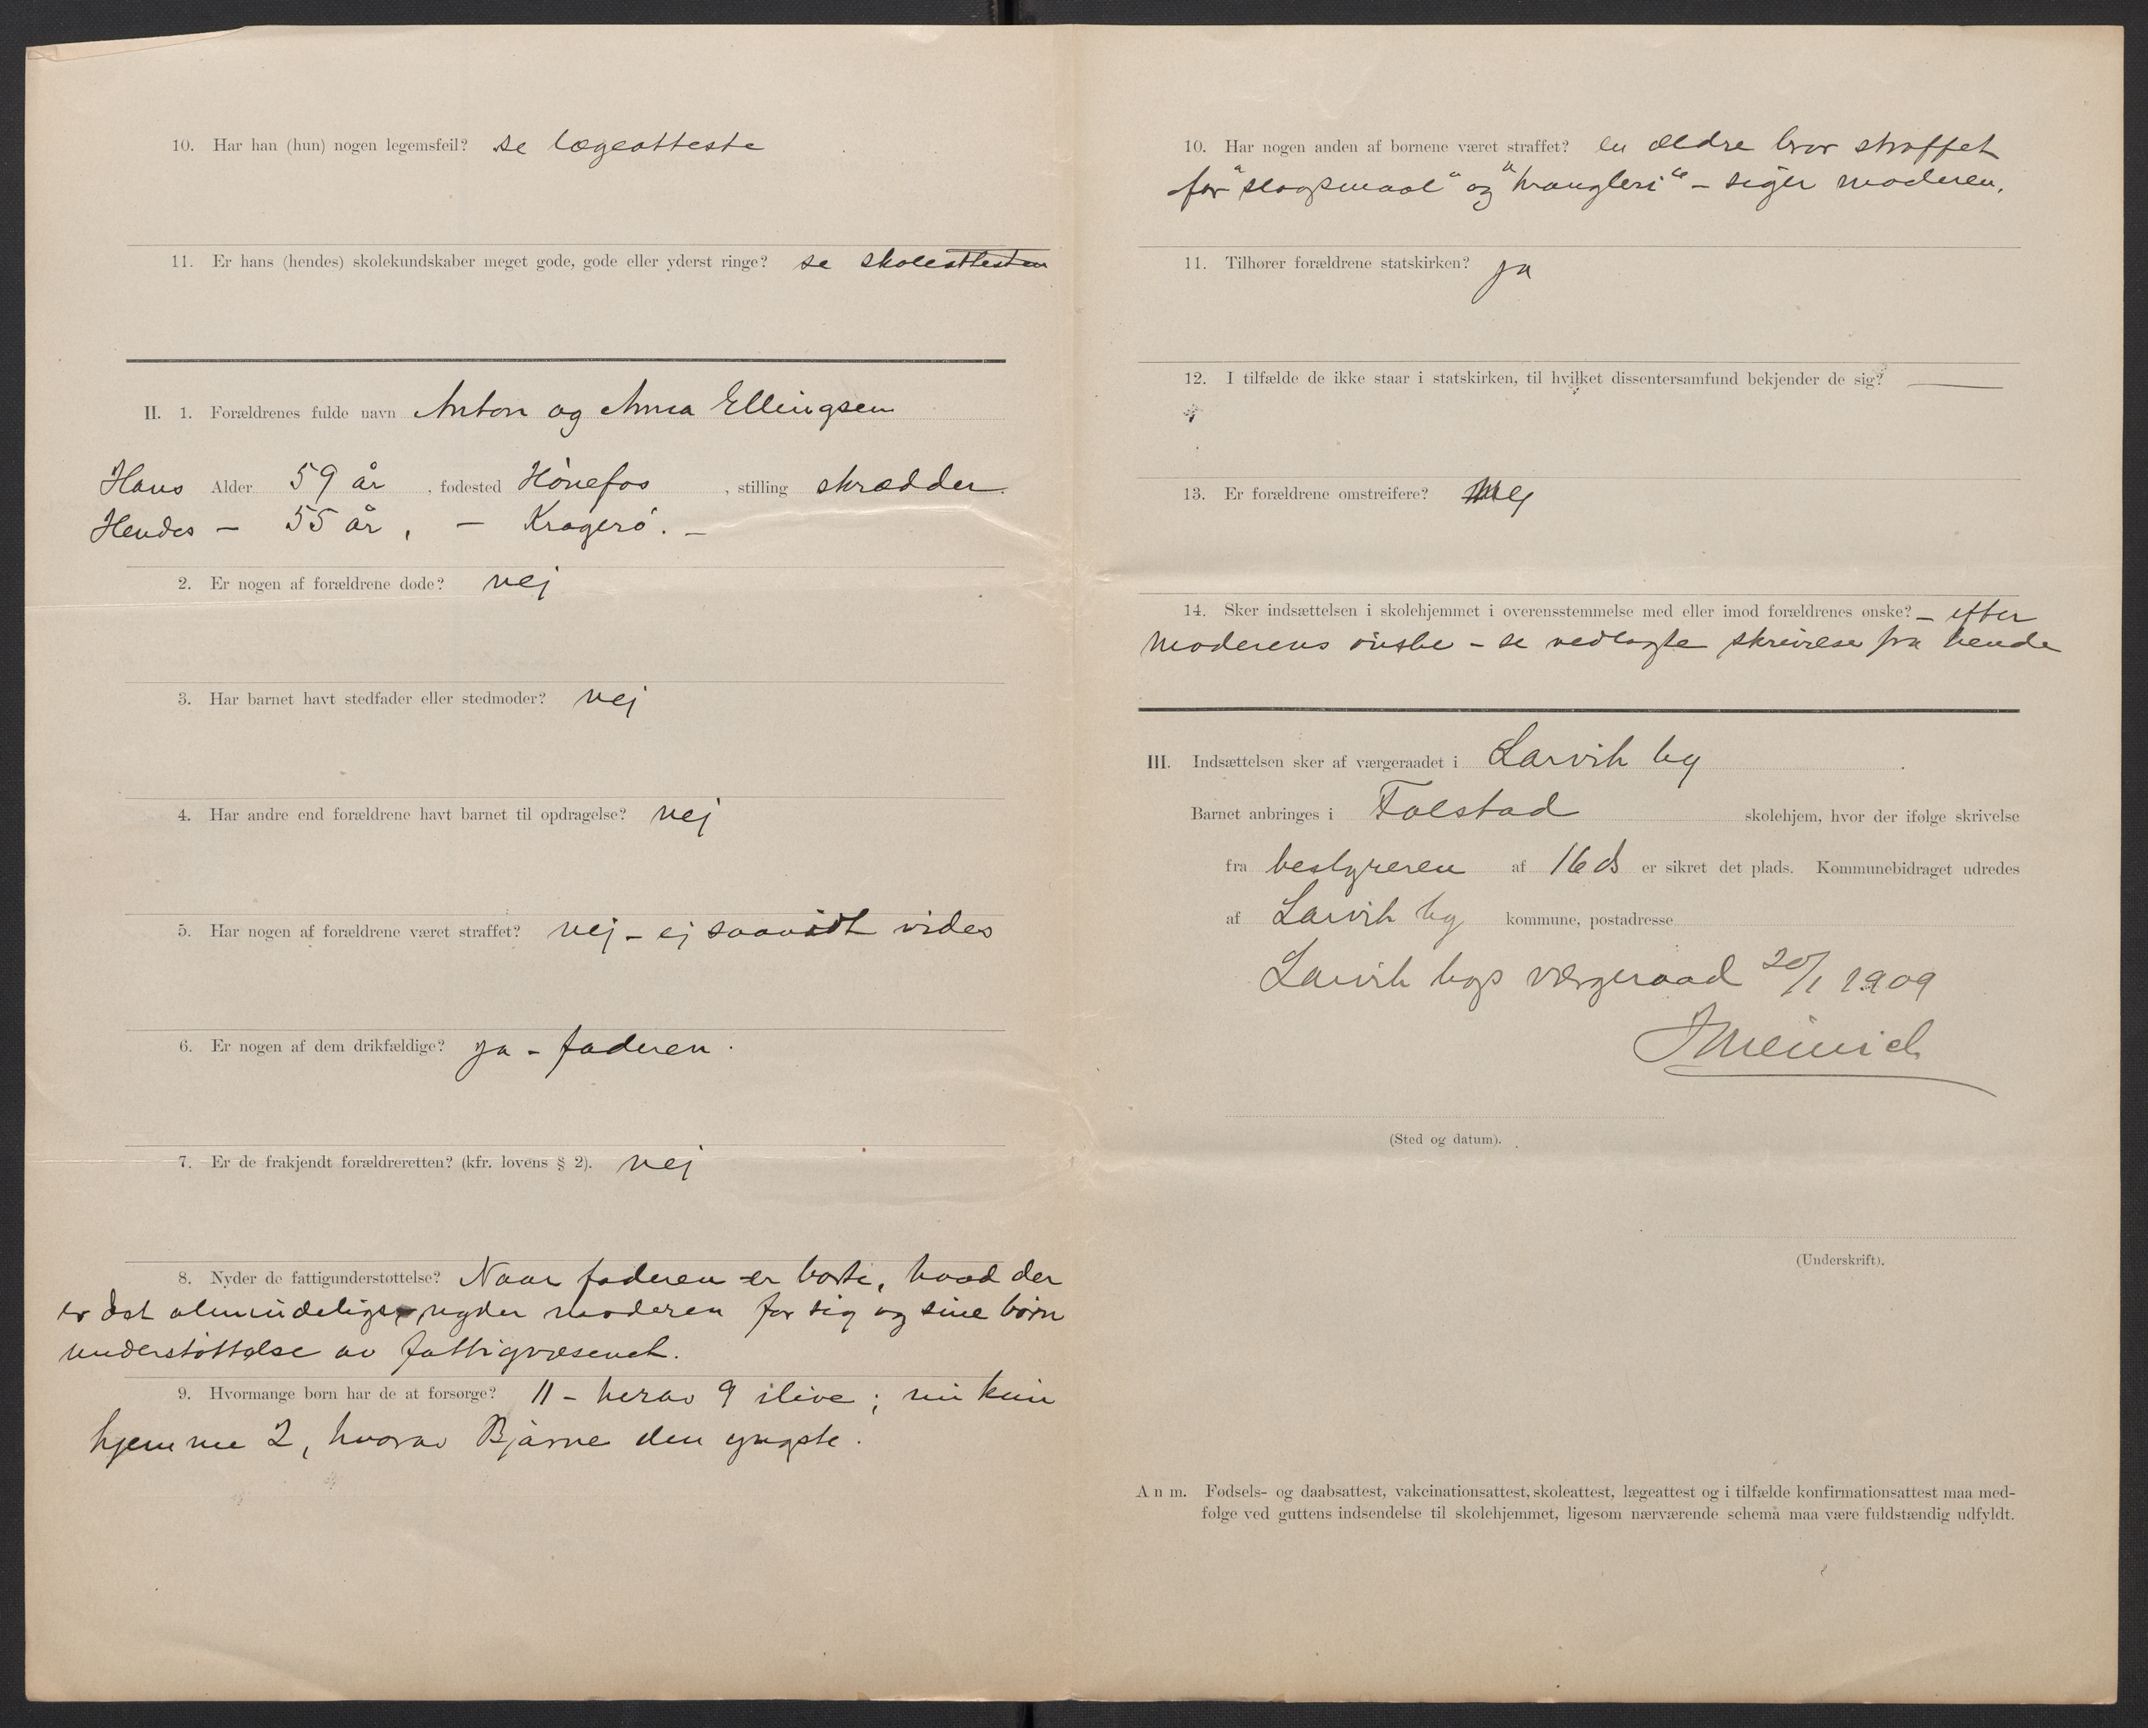 10. Har han (hun) nogen legemsfeil? se lægeatteste
11. Er hans (hendes) skolekundskaber meget gode, gode eller yderst ringe? se skoleattesten
II. 1. Forældrenes fulde navn Anton og Anna Ellingsen
Hans Alder 59 år, fødested Hönefos, stilling skrædder.
Hendes — 55 år, — Kragerö. —
2. Er nogen af forældrene døde? nej
3. Har barnet havt stedfader eller stedmoder? nej
4. Har andre end forældrene havt barnet til opdragelse? nej
5. Har nogen af forældrene været straffet? nej – ej saavidt vides
6. Er nogen af dem drikfældige? ja – faderen.
7. Er de frakjendt forældreretten? (kfr. lovens § 2). nej
8. Nyder de fattigunderstøttelse? Naar faderen er borte, hvad der
er det almindelige, nyder moderen for sig og sine börn
understöttelse av fattigvæsenet.
9. Hvormange børn har de at forsørge? 11 – herav 9 ilive; nu kun
hjemme 2, hvorav Bjarne den yngste.
10. Har nogen anden af børnene været straffet? en ældre bror straffet
for "slagsmaal" og "krangleri" – siger moderen.
11. Tilhører forældrene statskirken? ja
12. I tilfælde de ikke staar i statskirken, til hvilket dissentersamfund bekjender de sig? —
13. Er forældrene omstreifere? nej
14. Sker indsættelsen i skolehjemmet i overensstemmelse med eller imod forældrenes ønske? – efter
moderens önske – se vedlagte skrivelse fra hende
III. Indsættelsen sker af værgeraadet i Larvik by
Barnet anbringes i Falstad skolehjem, hvor der ifølge skrivelse
fra bestyreren af 16 ds er sikret det plads. Kommunebidraget udredes
af Larvik by kommune, postadresse
Larvik bys værgeraad 20/1 1909
(Sted og datum).
(Underskrift).
Anm. Fødsels- og daabsattest, vakcinationsattest, skoleattest, lægeattest og i tilfælde konfirmationsattest maa med-
følge ved guttens indsendelse til skolehjemmet, ligesom nærværende schema maa være fuldstændig udfyldt.